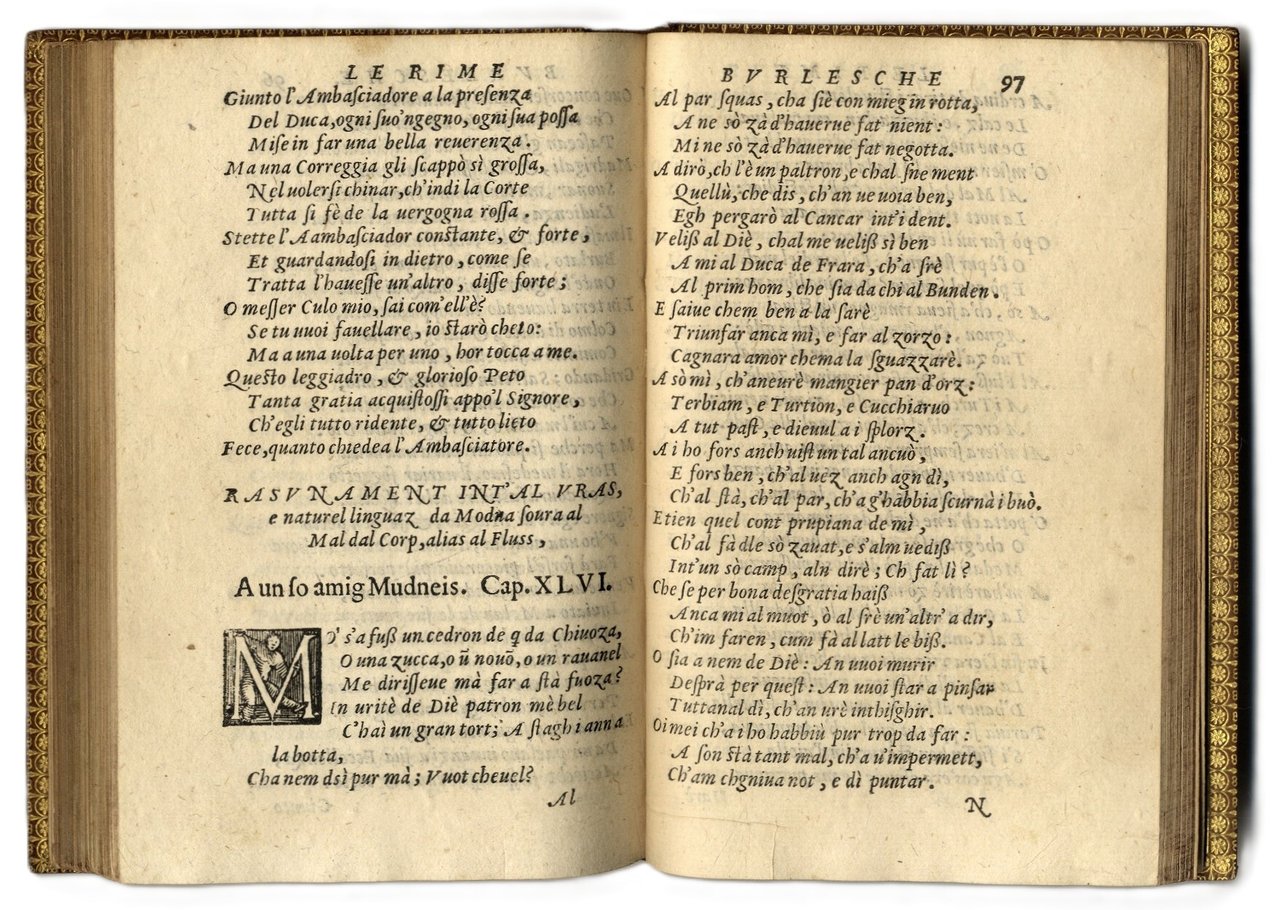 LE RIME
Giunto l'Ambaſciadore a la preſenza
Del Duca, ogni ſuo'ngegno, ogni ſua poſſa
Miſe in far una bella reuerenza.
Ma una Correggia gli ſcappò sì groſſa,
Nel uolerſi chinar, ch'indi la Corte
Tutta ſi fè de la uergogna roſſa.
Stette l'Aambaſciador conſtante, & forte,
Et guardandoſi in dietro, come ſe
Tratta l'haueſſe un'altro, diſſe forte;
O meſſer Culo mio, ſai com'ell'è?
Se tu uuoi fauellare, io ſtarò cheto:
Ma a una uolta per uno, hor tocca a me.
Queſto leggiadro, & glorioſo Peto
Tanta gratia acquiſtoſſi appo'l Signore,
Ch'egli tutto ridente, & tutto lieto
Fece, quanto chiedea l'Ambaſciatore.
RASVNAMENT INT'AL VRAS,
e naturel linguaz da Modna ſoura al
Mal dal Corp, alias al Fluss,
A un ſo amig Mudneis. Cap. XLVI.
MO' s'a fuß un cedron de q da Chiuoza,
O una zucca, o ũ nouõ, o un rauanel
Me diriſſeue mà far a ſtà fuoza?
In uritè de Diè patron mè bel
C'haì un gran tort; A ſtaghi anna
la botta,
Cha nem dsì pur mà; Vuot cheuel?
Al
BVRLESCHE 97
Al par ſquas, cha ſiè con mieg in rotta,
A ne sò zà d'hauerue fat nient:
Mi ne sò zà d'hauerue fat negotta.
A dirò, ch l'è un paltron, e chal ſne ment
Quellù, che dis, ch'an ue uoia ben,
Egh pergarò al Cancar int'i dent.
Veliß al Diè, chal me ueliß sì ben
A mi al Duca de Frara, ch'a ſrè
Al prim hom, che ſia da chi al Bunden.
E ſaiue chem ben a la ſarè
Triunfar anca mì, e far al zorzo:
Cagnara amor chema la ſguazzarè.
A sò mì, ch'aneurè mangier pan d'orz:
Terbiam, e Turtion, e Cucchiaruo
A tut paſt, e dieuul a i ſplorz.
A i ho fors anch uiſt un tal ancuò,
E fors ben, ch'al uez anch agn dì,
Ch'al ſtà, ch'al par, ch'a g'habbia ſcurnà i buò.
E tien quel cont prupiana de mì,
Ch'al fà dle sò zauat, e s'alm uediß
Int'un sò camp, aln dirè; Ch fat lì?
Che ſe per bona deſgratia haiß
Anca mi al muot, ò al ſrè un'altr' a dir,
Ch'im faren, cum fà al latt le biß.
O ſia a nem de Diè: An uuoi murir
Deſprà per queſt: An uuoi ſtar a pinſar
Tuttanal dì, ch'an urè inthiſghir.
Oi mei ch'a i ho habbiù pur trop da far:
A ſon ſtà tant mal, ch'a u'impermett,
Ch'am chgniua not, e dì puntar.
N